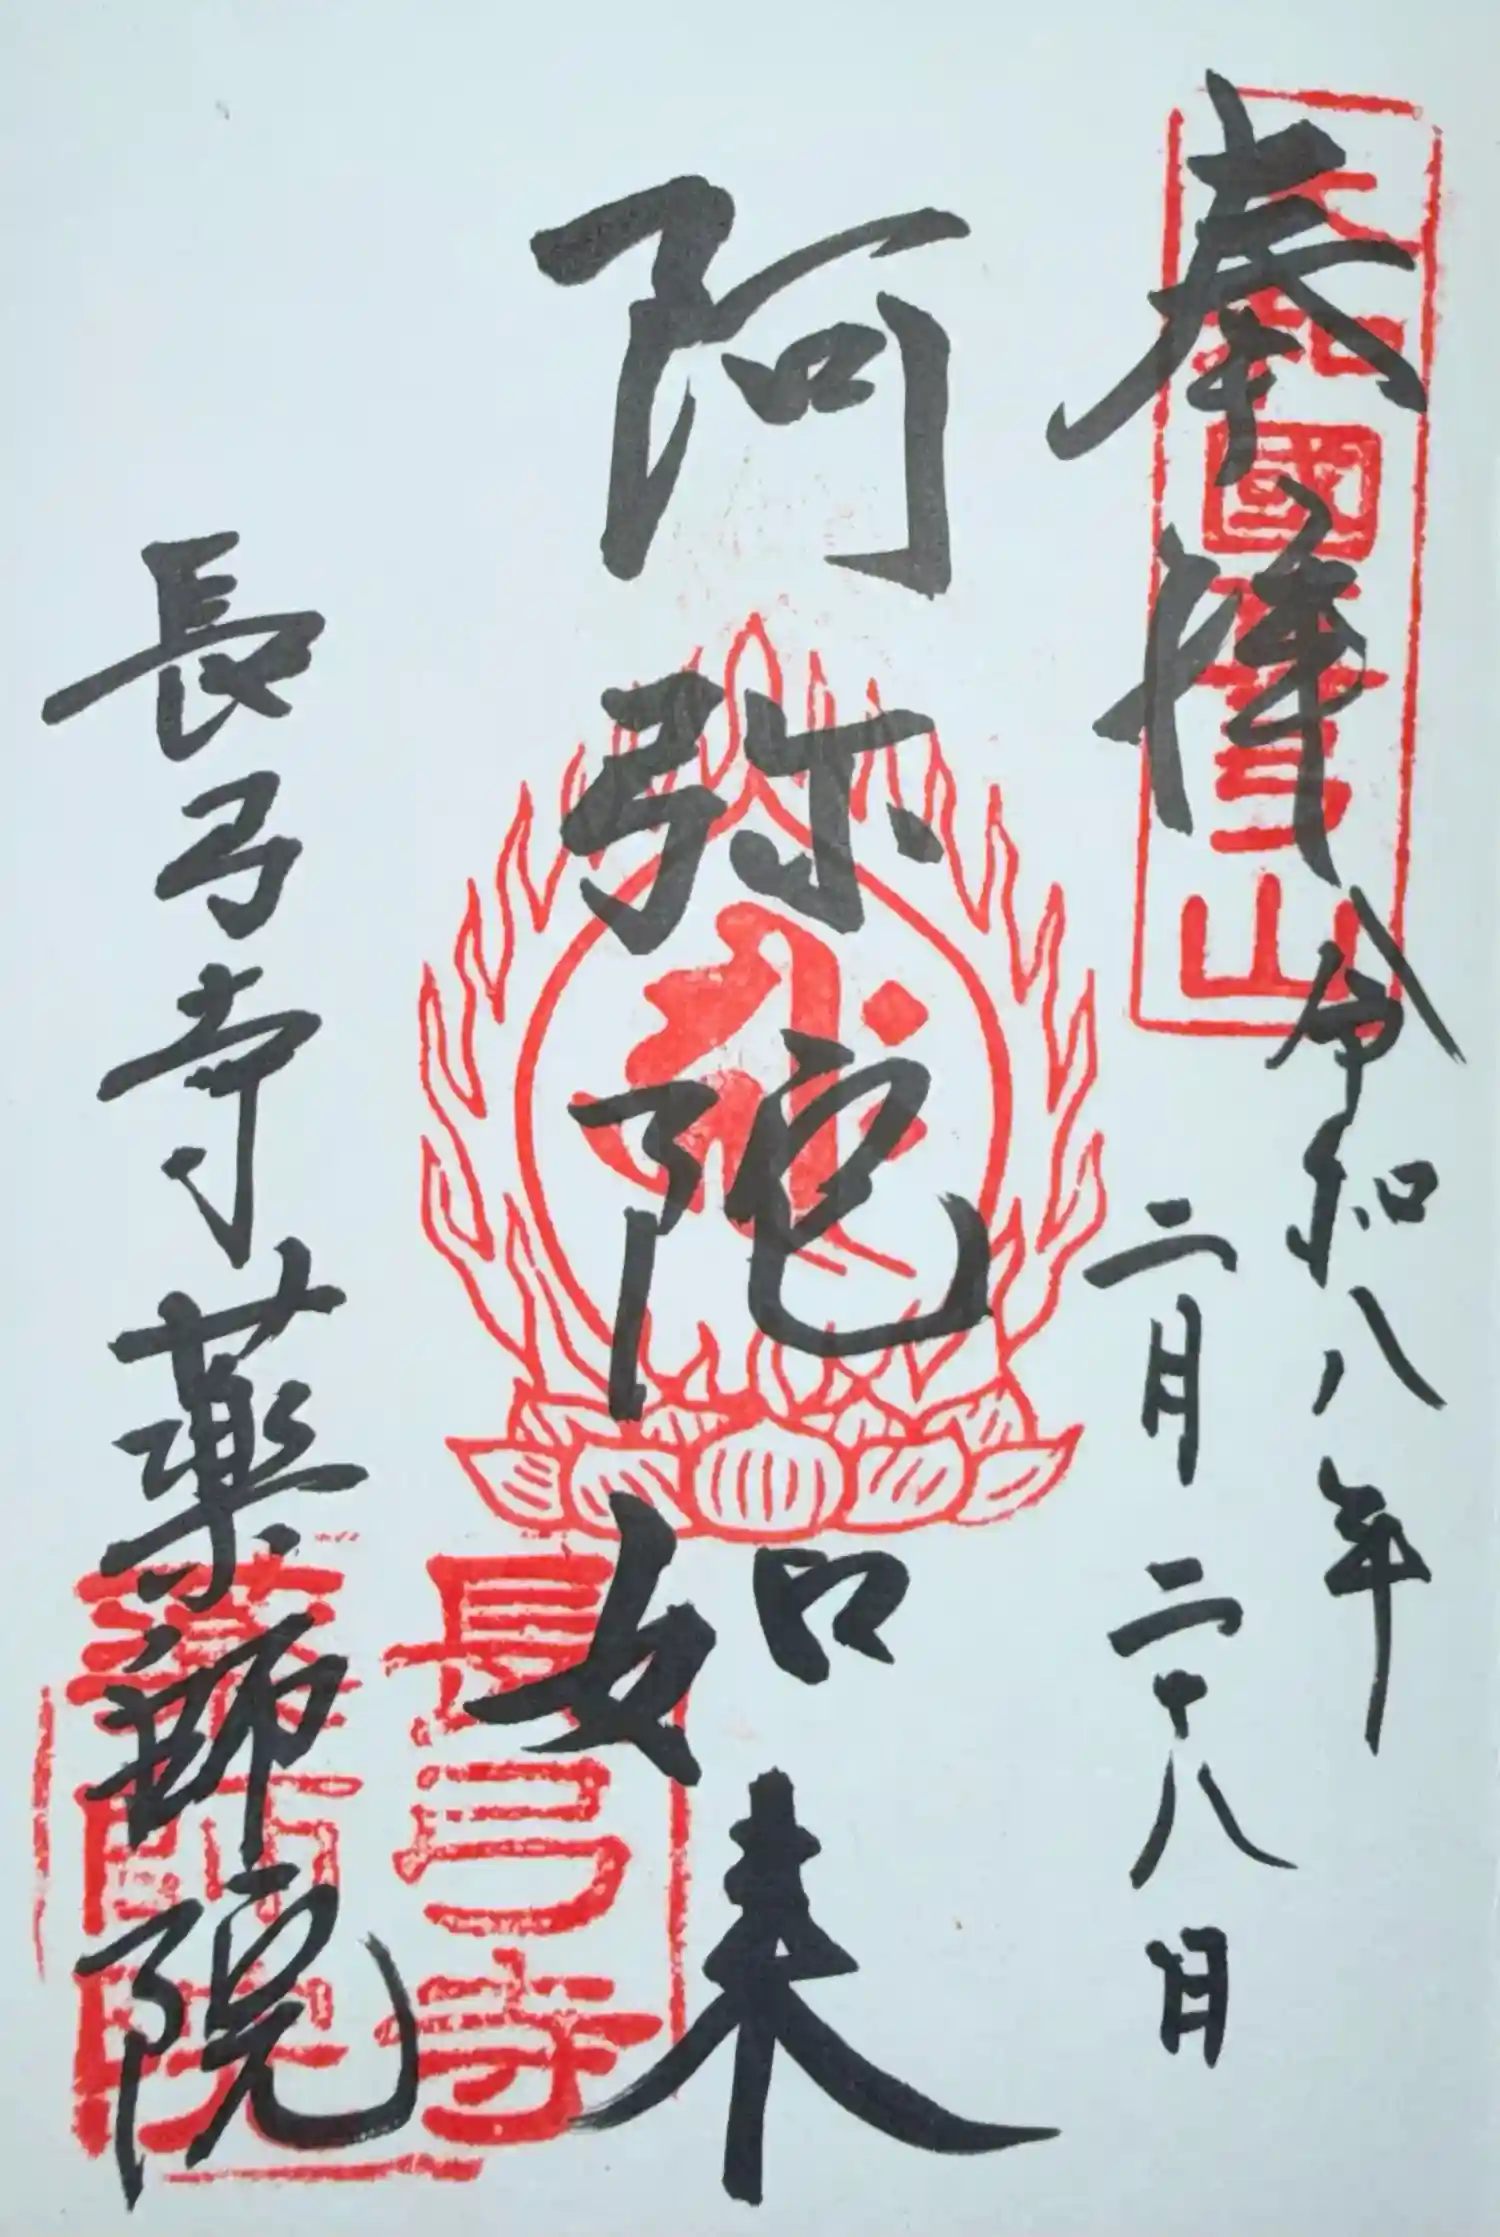 奉拝
令和八年
二月二十八日
阿弥陀如来
長弓寺薬師院
大和國真弓山
長弓寺
薬師院